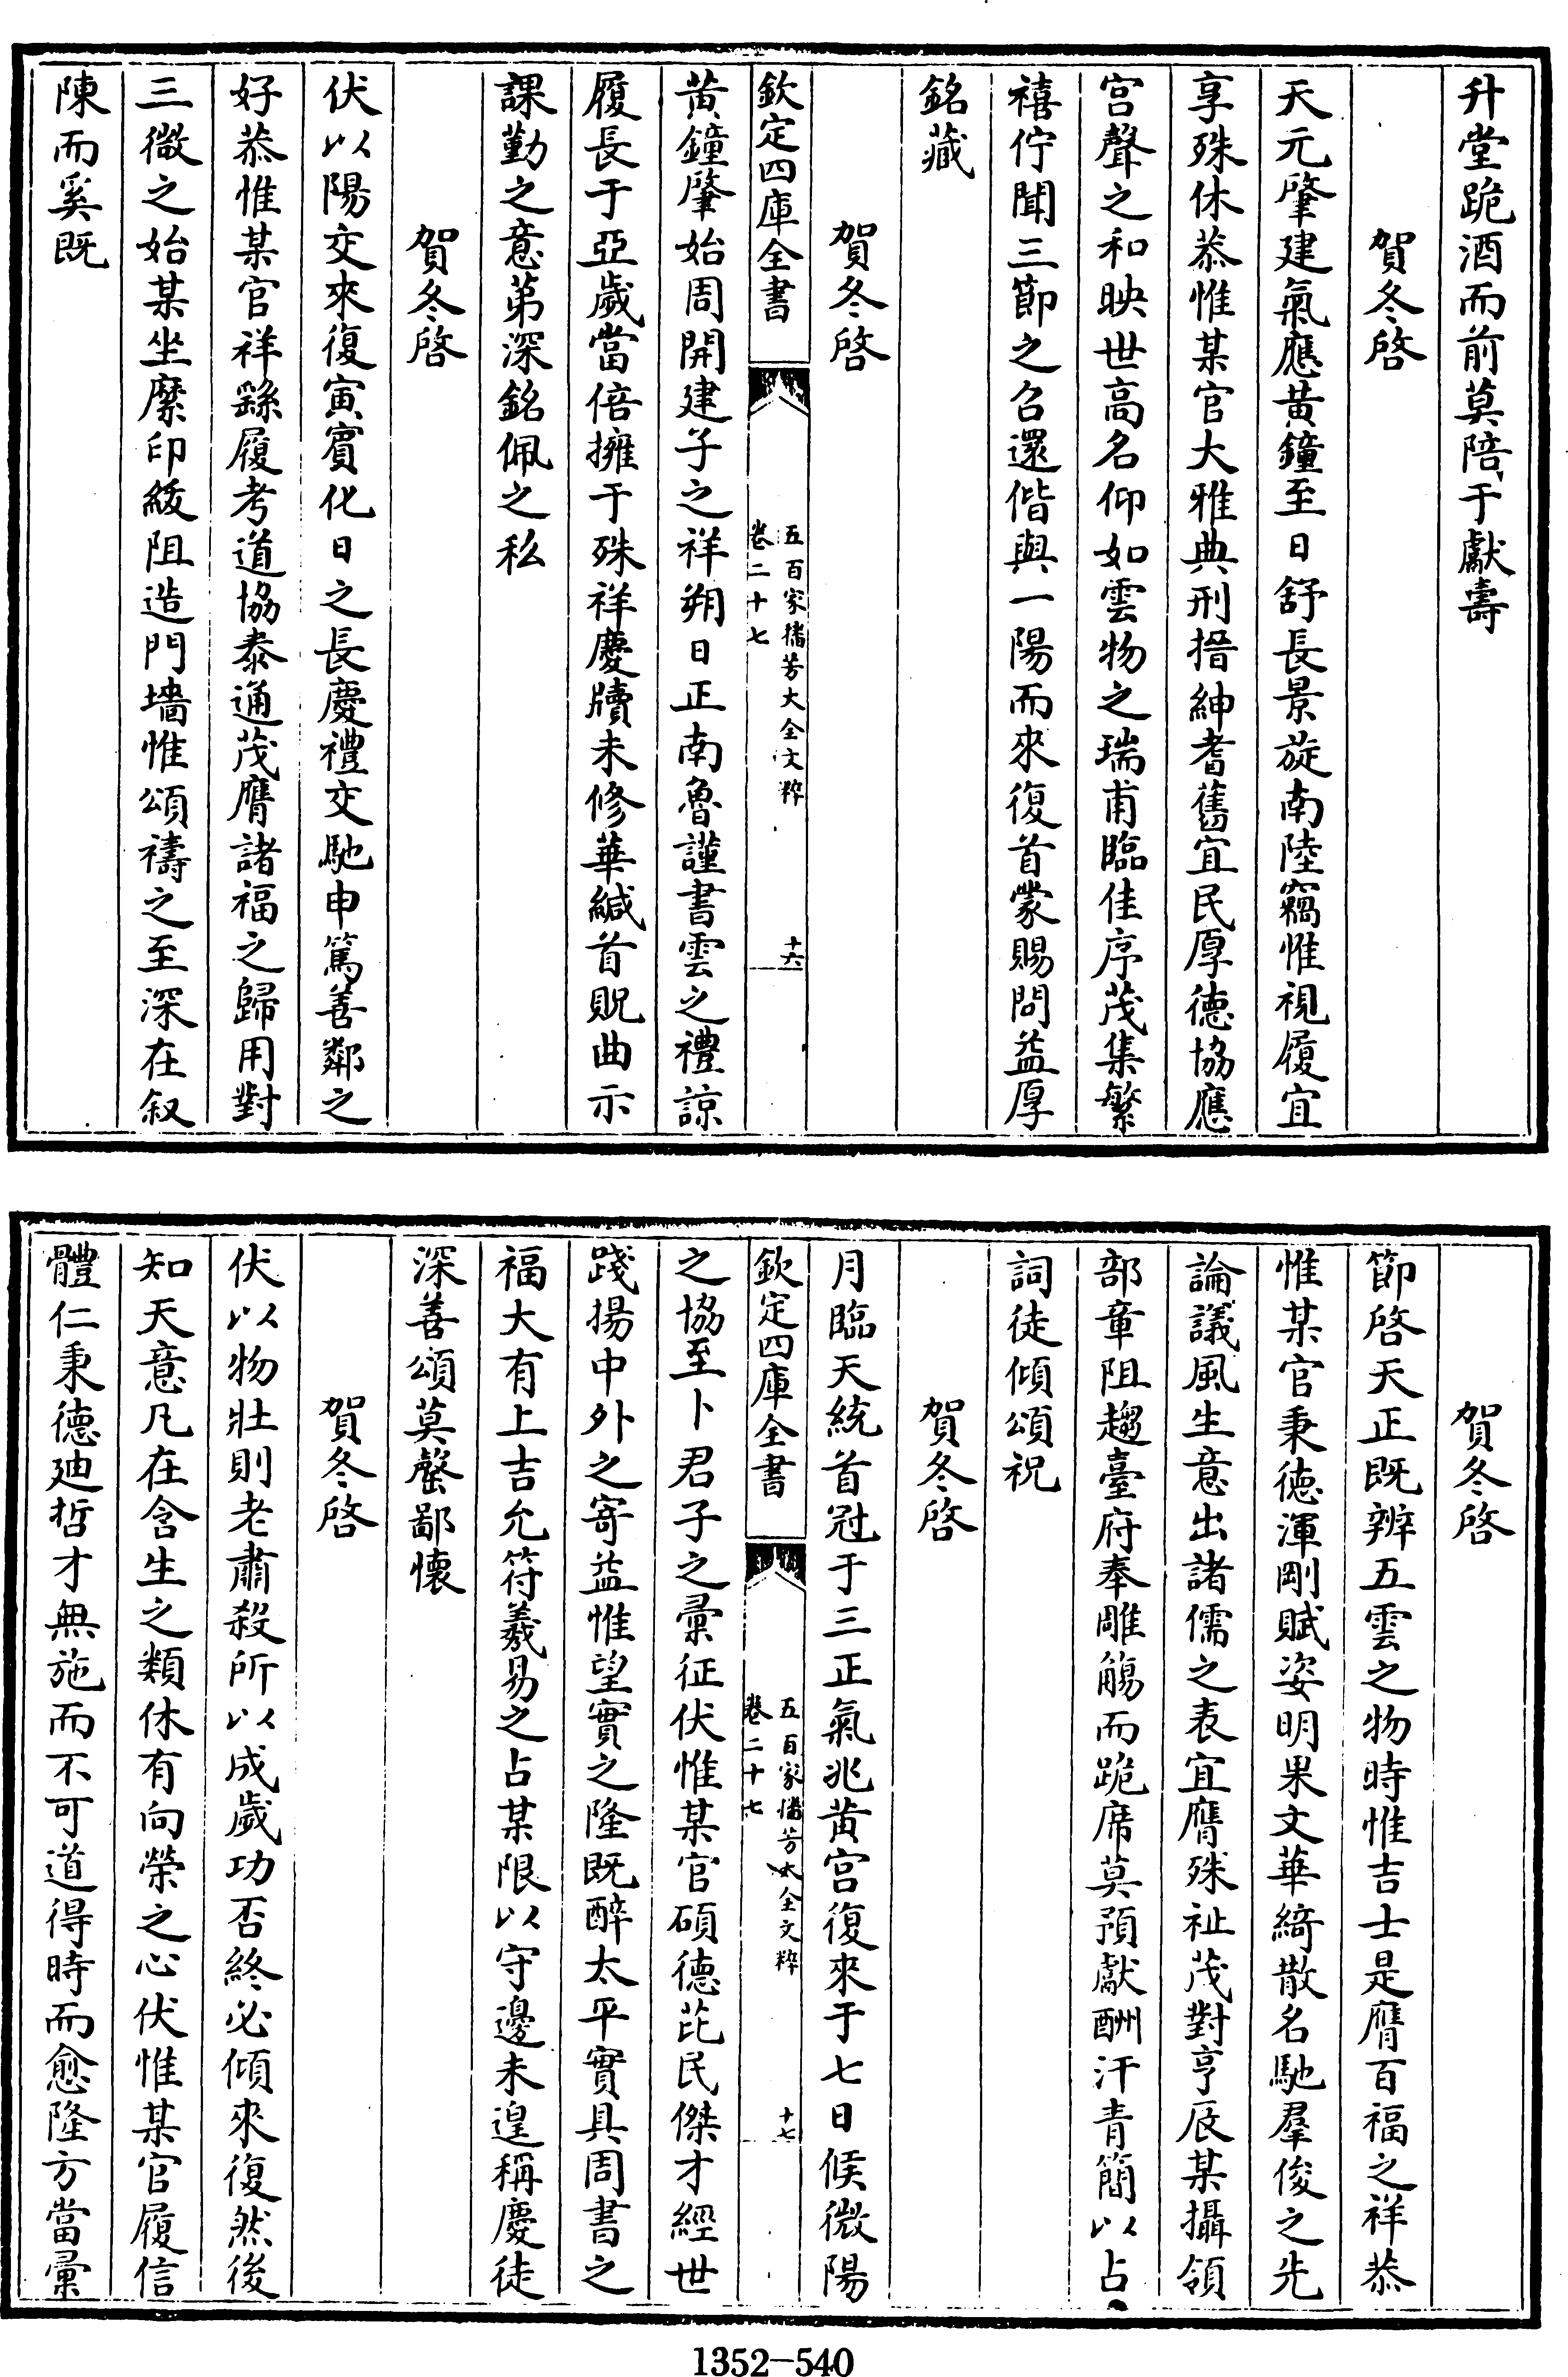 升堂跪酒而前莫陪于獻壽
賀冬啓
天元肇建氣應黃鐘至日舒長景旋南陸竊惟視履宜
享殊休恭惟某官大雅典刑搢紳耆舊宜民厚德協應
宫聲之和映世高名仰如雲物之瑞甫臨佳序茂集繁
禧佇聞三節之召還偕與一陽而來復首蒙賜問益厚
銘藏
賀冬啓
欽定四庫全書
五百家播芳大全文粹
卷二十七
十六
黃鐘肇始周開建子之祥朔日正南魯謹書雲之禮諒
履長于亞歲當倍擁于殊祥慶牘未修華緘首貺曲示
課勤之意第深銘佩之私
賀冬啓
伏以陽交來復寅賓化日之長慶禮交馳申篤善鄰之
好恭惟某官祥繇履考道協泰通茂膺諸福之歸用對
三微之始某坐縻印紱阻造門墻惟頌禱之至深在叙
陳而奚既
賀冬啓
節啓天正既辨五雲之物時惟吉士是膺百福之祥恭
惟某官秉德渾剛賦姿明果文華綺散名馳羣俊之先
論議風生意出諸儒之表宜膺殊祉茂對亨辰某攝領
部章阻趨臺府奉雕觴而跪席莫預獻酬汗青簡以占
詞徒傾頌祝
賀冬啓
月臨天統首冠于三正氣兆黃宫復來于七日候微陽
欽定四庫全書
五百家播芳大全文粹
卷二十七
十七
之協至卜君子之彙征伏惟某官碩德芘民傑才經世
踐揚中外之寄益惟望實之隆既醉太平實具周書之
福大有上吉允符羲易之占某限以守邊未遑稱慶徒
深善頌莫罄鄙懷
賀冬啓
伏以物壯則老肅殺所以成歲功否終必傾來復然後
知天意凡在含生之類休有向榮之心伏惟某官履信
體仁秉德迪哲才無施而不可道得時而愈隆方當彙
1352-540